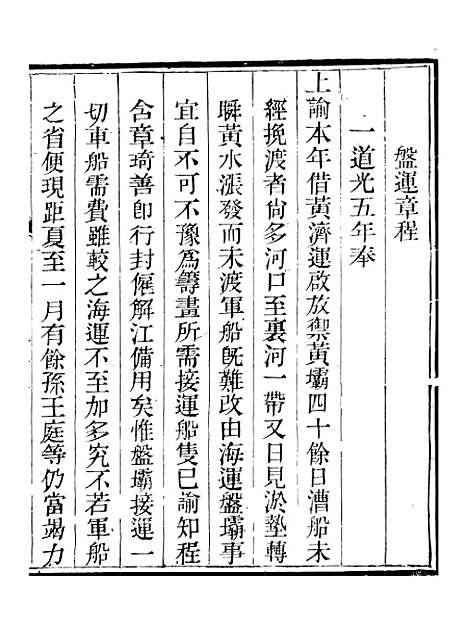 盤運章程
一道光五年奉
上諭本年借黃濟運啟放禦黃壩四十餘日漕船未
經挽渡者尙多河口至裏河一帶又日見淤墊轉
瞬黃水漲發而未渡軍船旣難改由海運盤壩事
宜自不可不豫爲籌畫所需接運船隻已諭知程
含章琦善卽行封僱解江備用矣惟盤壩接運一
切車船需費雖較之海運不至加多究不若軍船
之省便現距夏至一月有餘孫玉庭等仍當竭力